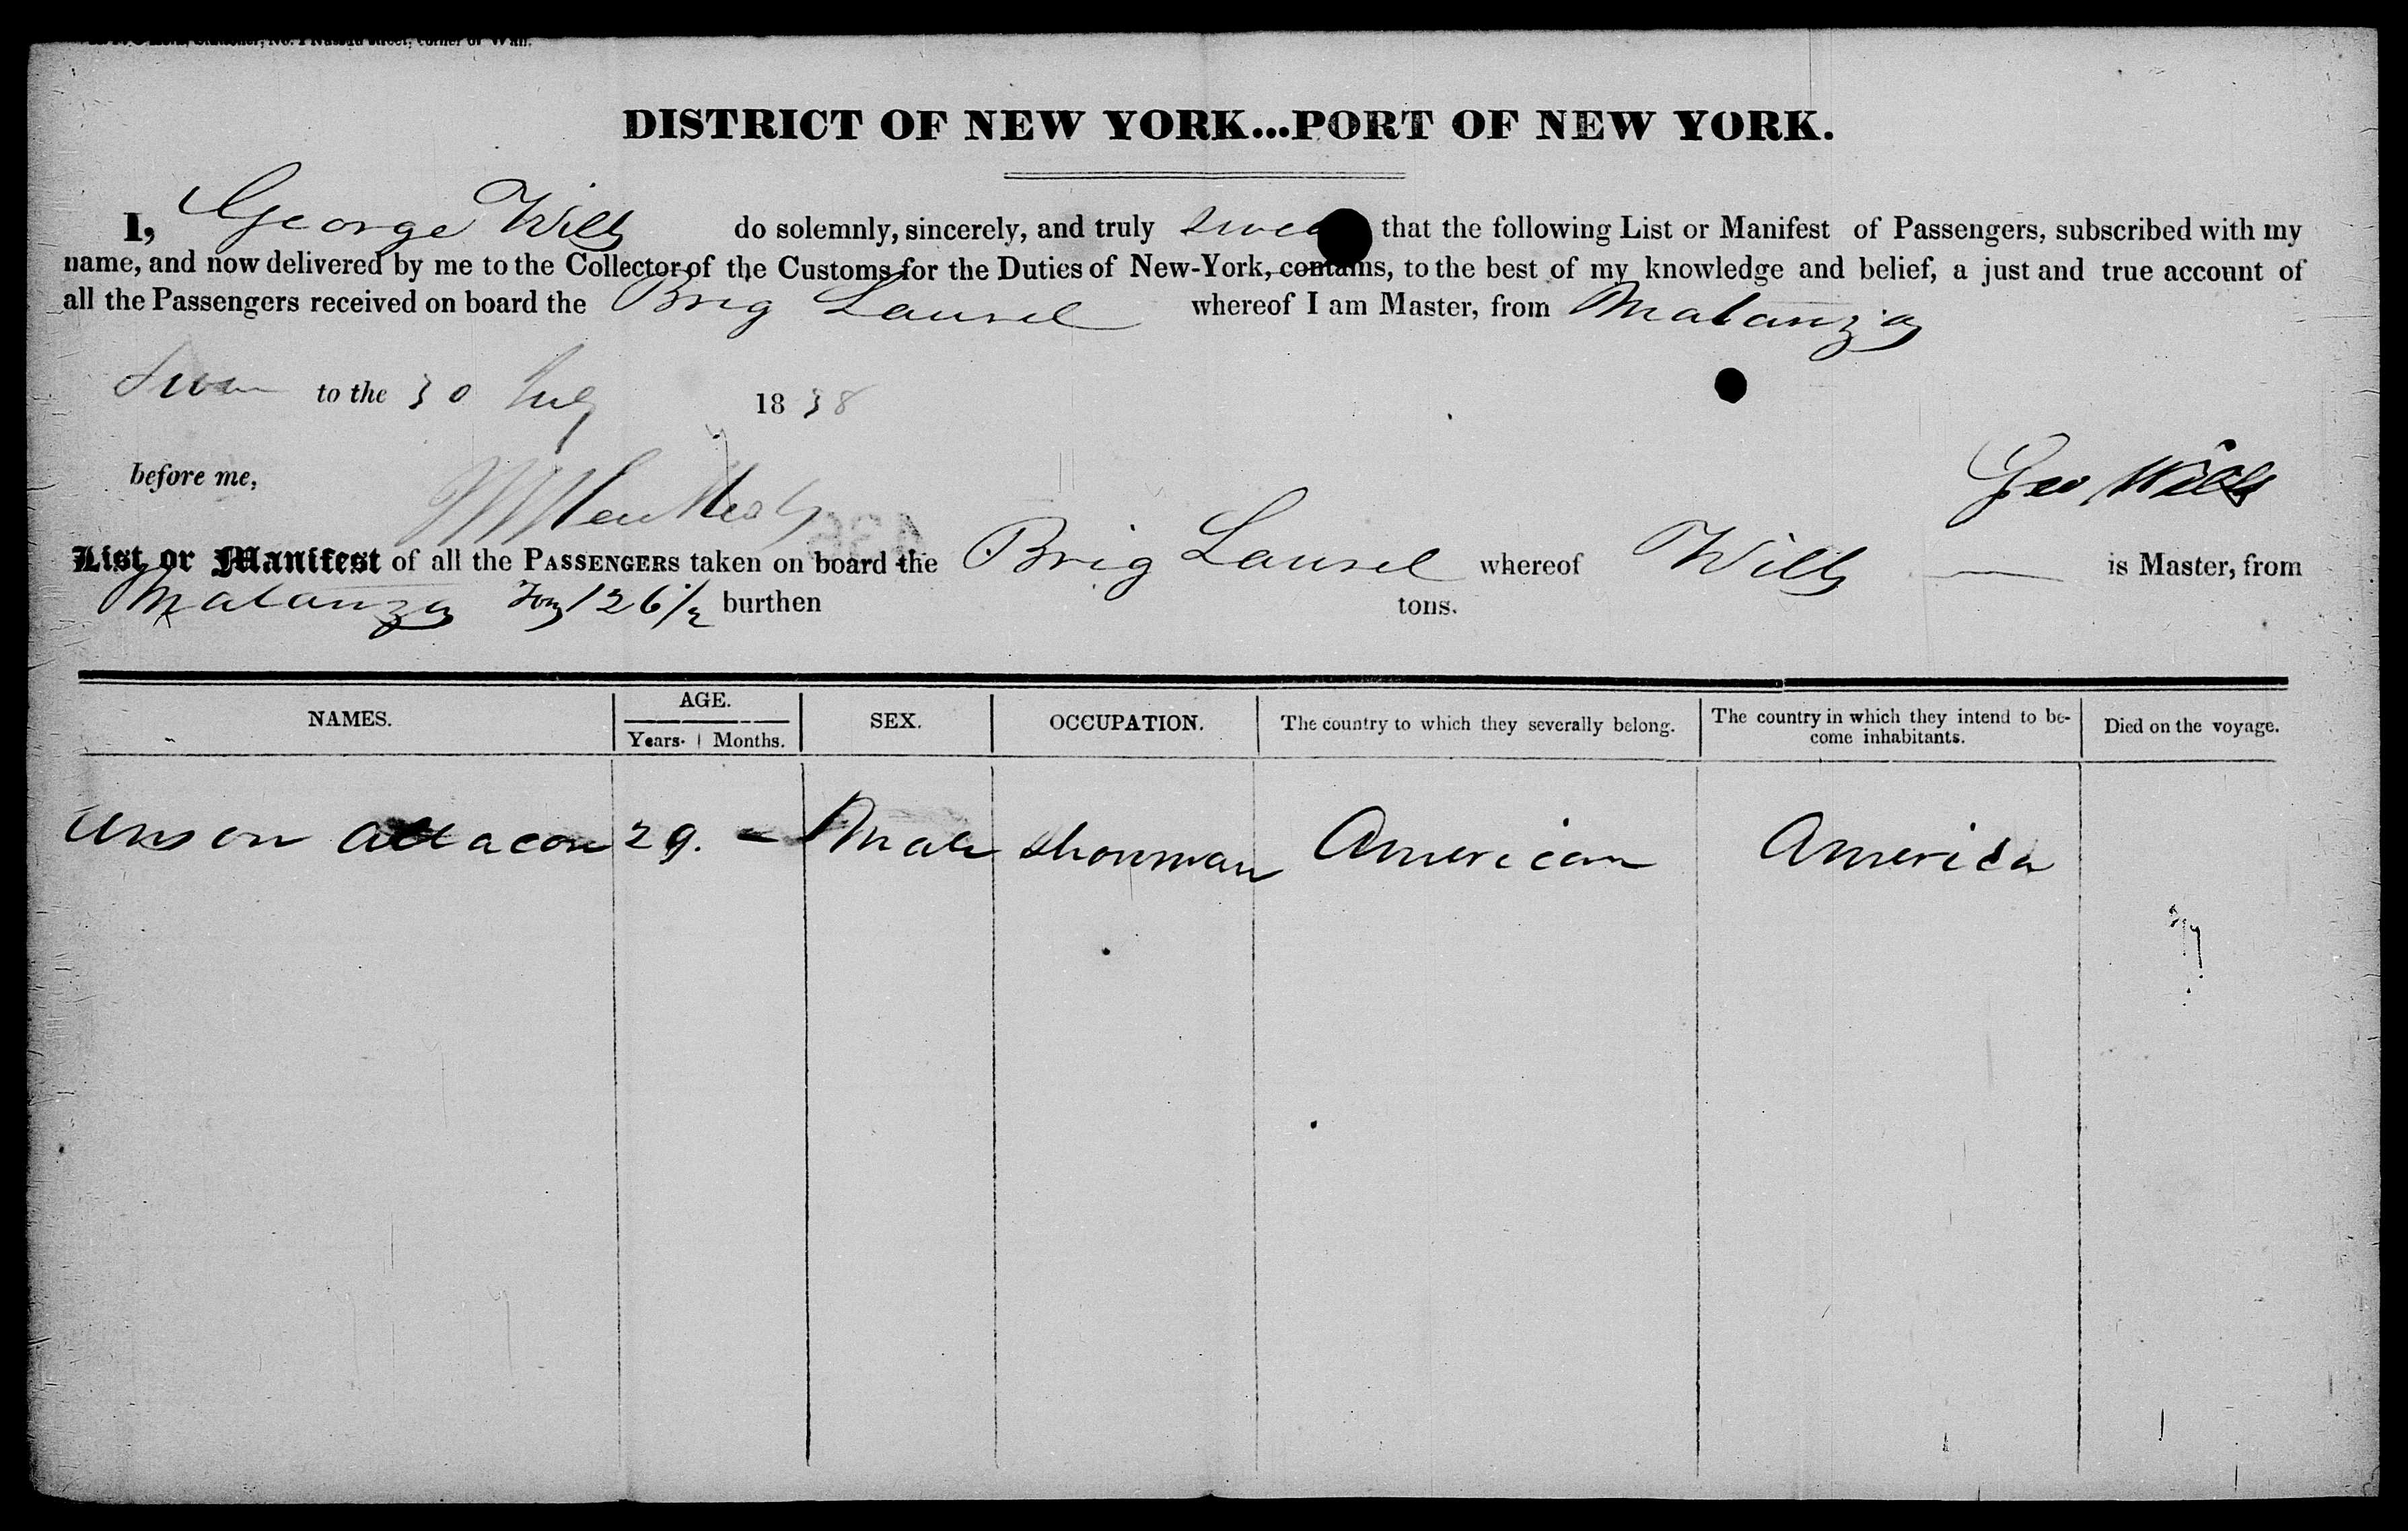 No. 1 Nassau Street, corner of Wall.
DISTRICT OF NEW YORK...PORT OF NEW YORK.
I, George Wills do solemnly, sincerely, and truly swear that the following List or Manifest of Passengers, subscribed with my
name, and now delivered by me to the Collector of the Customs for the Duties of New-York, contains, to the best of my knowledge and belief, a just and true account of
all the Passengers received on board the Brig Laurel whereof I am Master, from Matanzas
Sworn to the 30 July 1838
before me,
Geo Wills
List or Manifest of all the PASSENGERS taken on board the Brig Laurel whereof Wills is Master, from
Matanzas Tons 126 1/2 burthen tons.
NAMES. AGE. SEX. OCCUPATION. The country to which they severally belong. The country in which they intend to be- Died on the voyage.
Years. Months. come inhabitants.
Anson 29. - Male showman American America